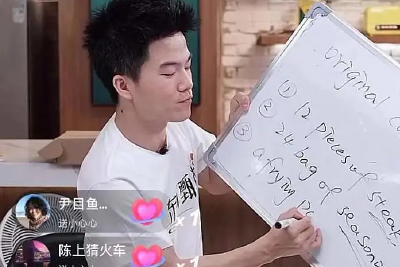 original
① 12 pieces of steak
② 24 bag of seasoning
③ a frying pa
尹目鱼...
送小心心
×1
陈上猜火车
×1